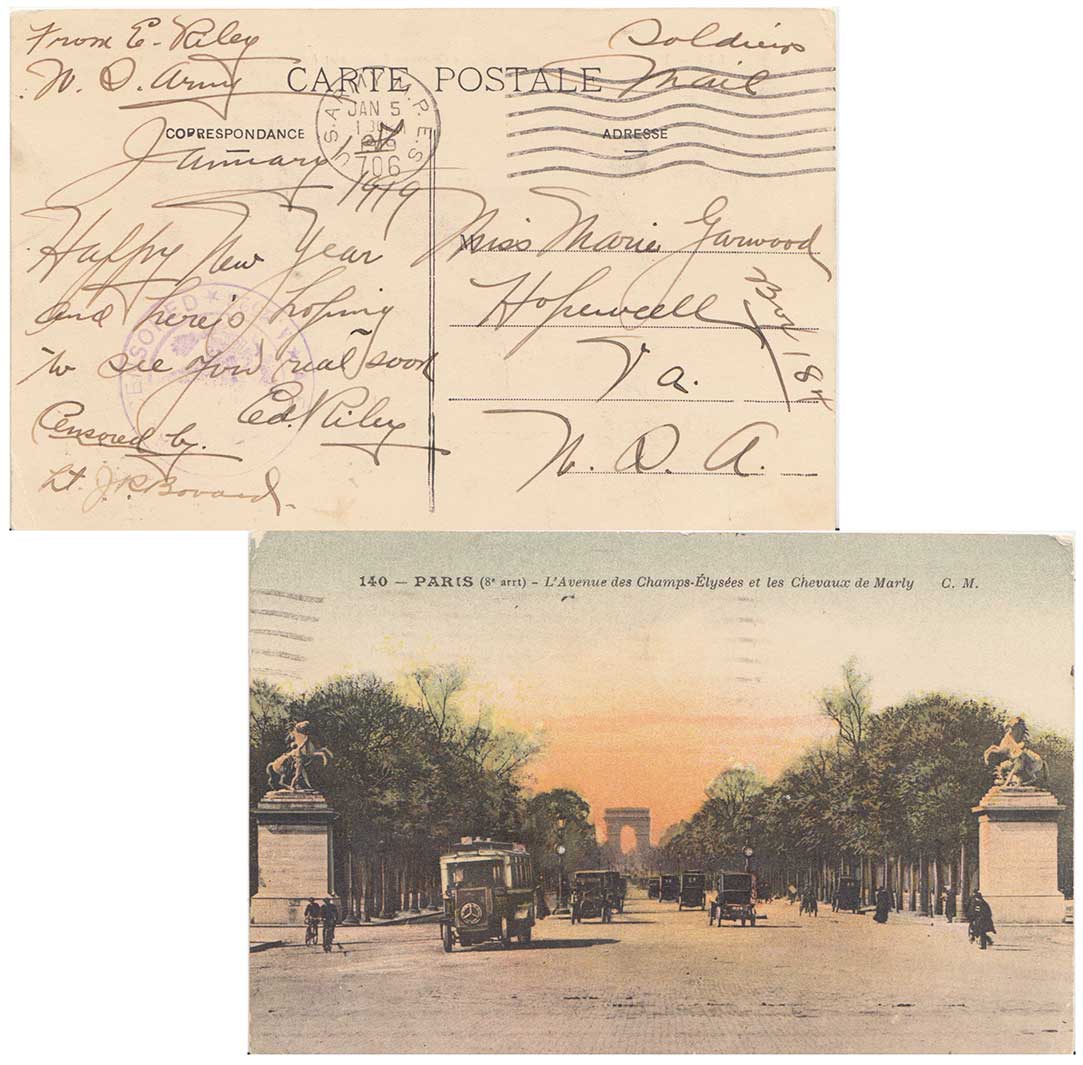 From E. Riley
U. S. Army
Soldiers
Mail
CARTE POSTALE
CORRESPONDANCE
ADRESSE
JAN 5
1919
706
January 1st
1919
Happy New Year
and here's hoping
to see you real soon
Ed. Riley
Censored by.
Lt. J. R. Bovard.
CENSORED
Miss Marie Garwood
Hopewell
Va.
U. S. A.
Box 181
140 — PARIS (8e arrt) - L'Avenue des Champs-Élysées et les Chevaux de Marly C. M.